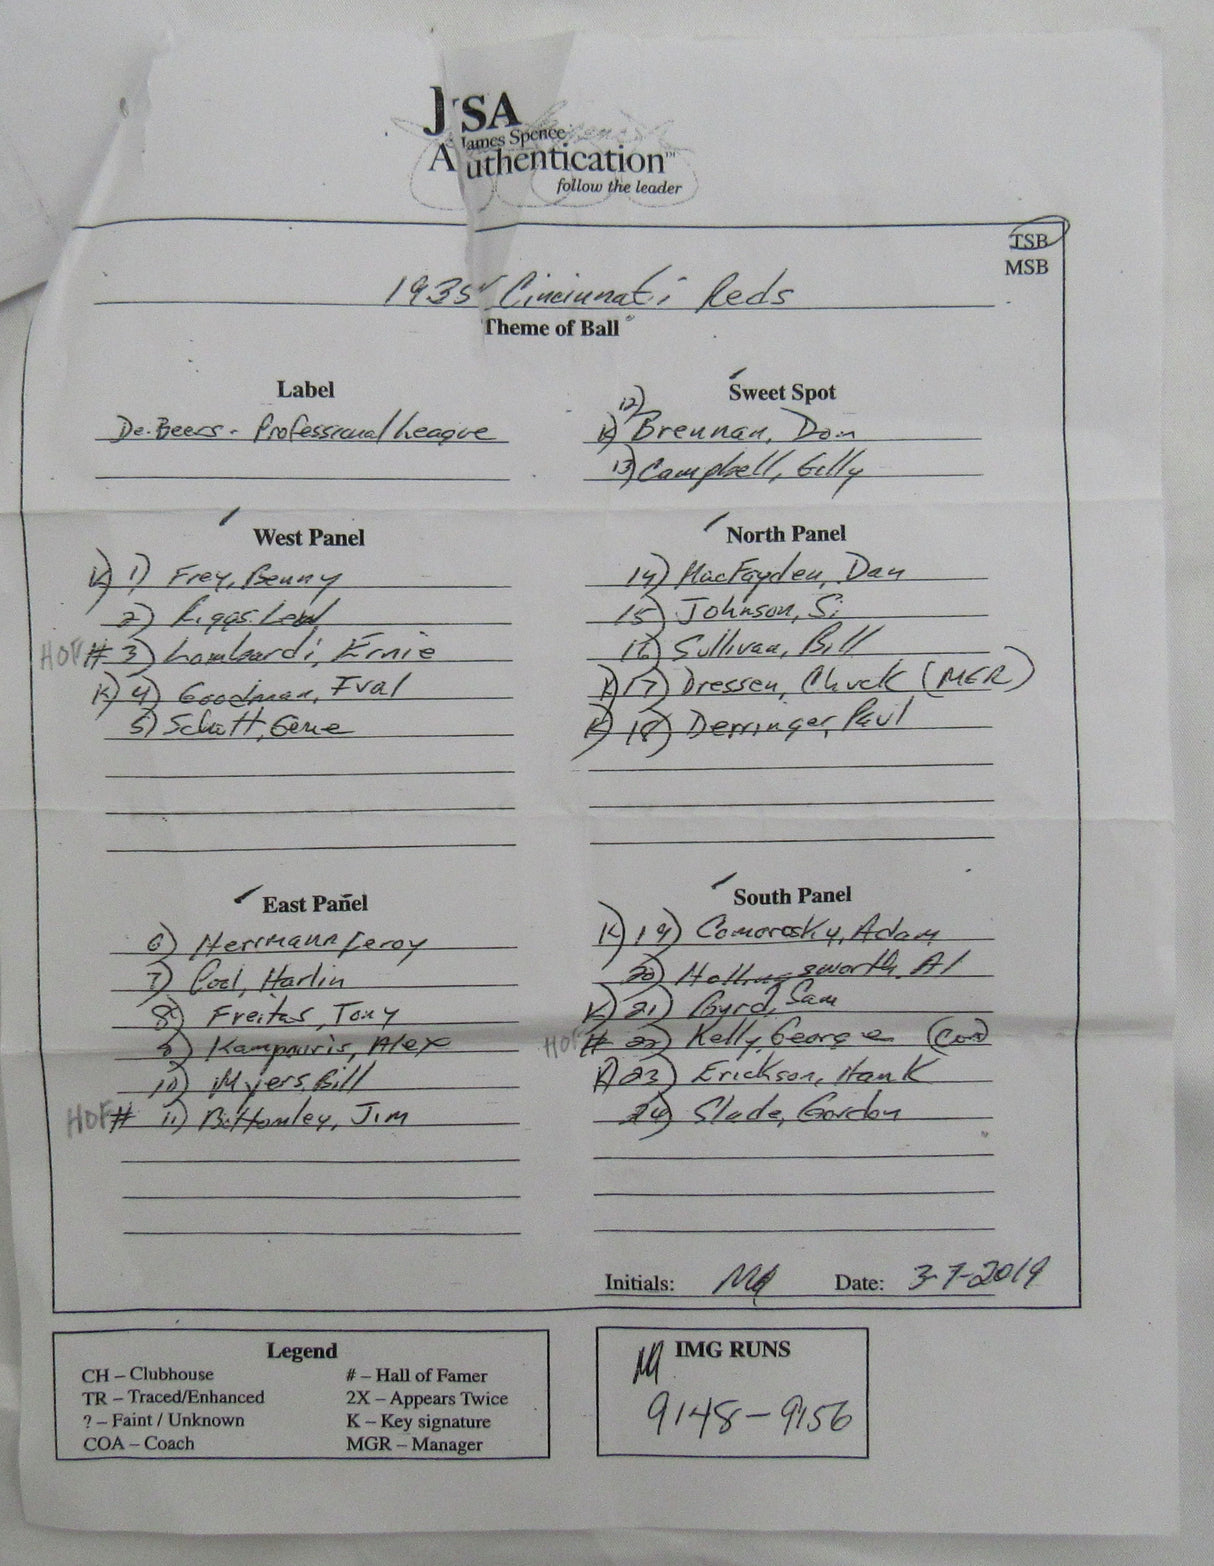 JSA
James Spence
Authentication™
follow the leader
TSB
MSB
1935 Cincinnati Reds
Theme of Ball
Label
De-Beers - Professional League
Sweet Spot
12)
K) Brennan, Don
13) Campbell, Gilly
West Panel
K) 1) Frey, Benny
2) Riggs, Lew
HOF # 3) Lombardi, Ernie
K) 4) Goodman, Ival
5) Schott, Gene
North Panel
14) MacFayden, Dan
15) Johnson, Si
16) Sullivan, Bill
K) 17) Dressen, Chuck (MGR)
K) 18) Derringer, Paul
East Panel
6) Herrmann, Leroy
7) Pool, Harlin
8) Freitas, Tony
9) Kampouris, Alex
10) Myers, Bill
HOF # 11) Bottomley, Jim
South Panel
K) 19) Comorosky, Adam
20) Hollingsworth, Al
K) 21) Byrd, Sam
HOF # 22) Kelly, George (COA)
K) 23) Erickson, Hank
24) Slade, Gordon
Initials: Date: 3-7-2019
Legend
CH – Clubhouse # – Hall of Famer
TR – Traced/Enhanced 2X – Appears Twice
? – Faint / Unknown K – Key signature
COA – Coach MGR – Manager
IMG RUNS
9148-9156